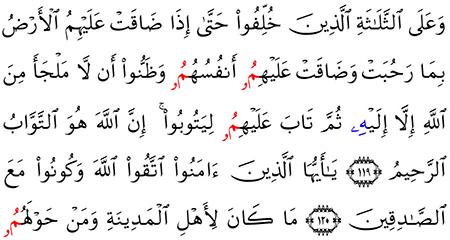 وَعَلَى ٱلثَّلَٰثَةِ ٱلَّذِينَ خُلِّفُوا۟ حَتَّىٰٓ إِذَا ضَاقَتْ عَلَيْهِمُ ٱلْأَرْضُ
بِمَا رَحُبَتْ وَضَاقَتْ عَلَيْهِمُۥ أَنفُسُهُمُۥ وَظَنُّوٓا۟ أَن لَّا مَلْجَأَ مِنَ
ٱللَّهِ إِلَّآ إِلَيْهِۦ ثُمَّ تَابَ عَلَيْهِمُۥ لِيَتُوبُوٓا۟ ۚ إِنَّ ٱللَّهَ هُوَ ٱلتَّوَّابُ
ٱلرَّحِيمُ ﴿١١٩﴾ يَٰٓأَيُّهَا ٱلَّذِينَ ءَامَنُوا۟ ٱتَّقُوا۟ ٱللَّهَ وَكُونُوا۟ مَعَ
ٱلصَّٰدِقِينَ ﴿١٢٠﴾ مَا كَانَ لِأَهْلِ ٱلْمَدِينَةِ وَمَنْ حَوْلَهُمُۥ